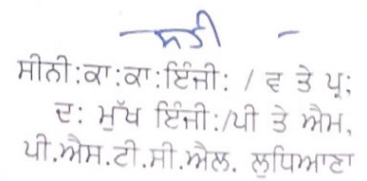 ਸੀਨੀ:ਕਾ:ਕਾ:ਇੰਜੀ: / ਵ ਤੇ ਪ੍ਰ;
ਦ: ਮੁੱਖ ਇੰਜੀ:/ਪੀ ਤੇ ਐਮ,
ਪੀ.ਐਸ.ਟੀ.ਸੀ.ਐਲ. ਲੁਧਿਆਣਾ